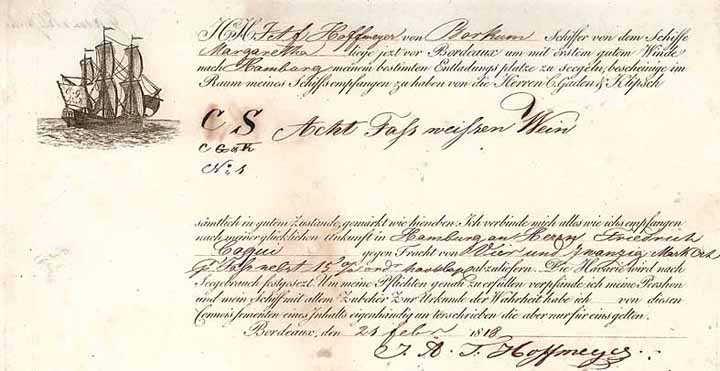 Hoffmeyer von Borkum Schiffer von dem Schiffe
Margaretha liege jezt vor Bordeaux um mit ersten gutem Winde
nach Hamburg meinem bestimten Entladungsplatze zu seegeln, bescheinige im
Raum meines Schiffs empfangen zu haben von die Herren C. Gaden & Klipsch
C S Acht Fass weissen Wein
C G & K
No. 1
sämtlich in gutem Zustande, gemarkt wie hieneben. Ich verbinde mich alles wie ichs empfangen
nach meiner glücklichen Ankunft in Hamburg an Herrn Friedrich
gegen Fracht von Vier und zwanzig Mark
Fass nebst 15 % abzuliefern. Die Havarie wird nach
Seegebrauch festgesezt. Um meine Pflichten genau zu erfüllen verpfände ich meine Person
und mein Schiff mit allem Zubehör. Zur Urkunde der Wahrheit habe ich von diesen
Connoissementen eines Inhalts eigenhändig unterschrieben die aber nur für eins gelten.
Bordeaux, den 21 febr 1818
Hoffmeyer